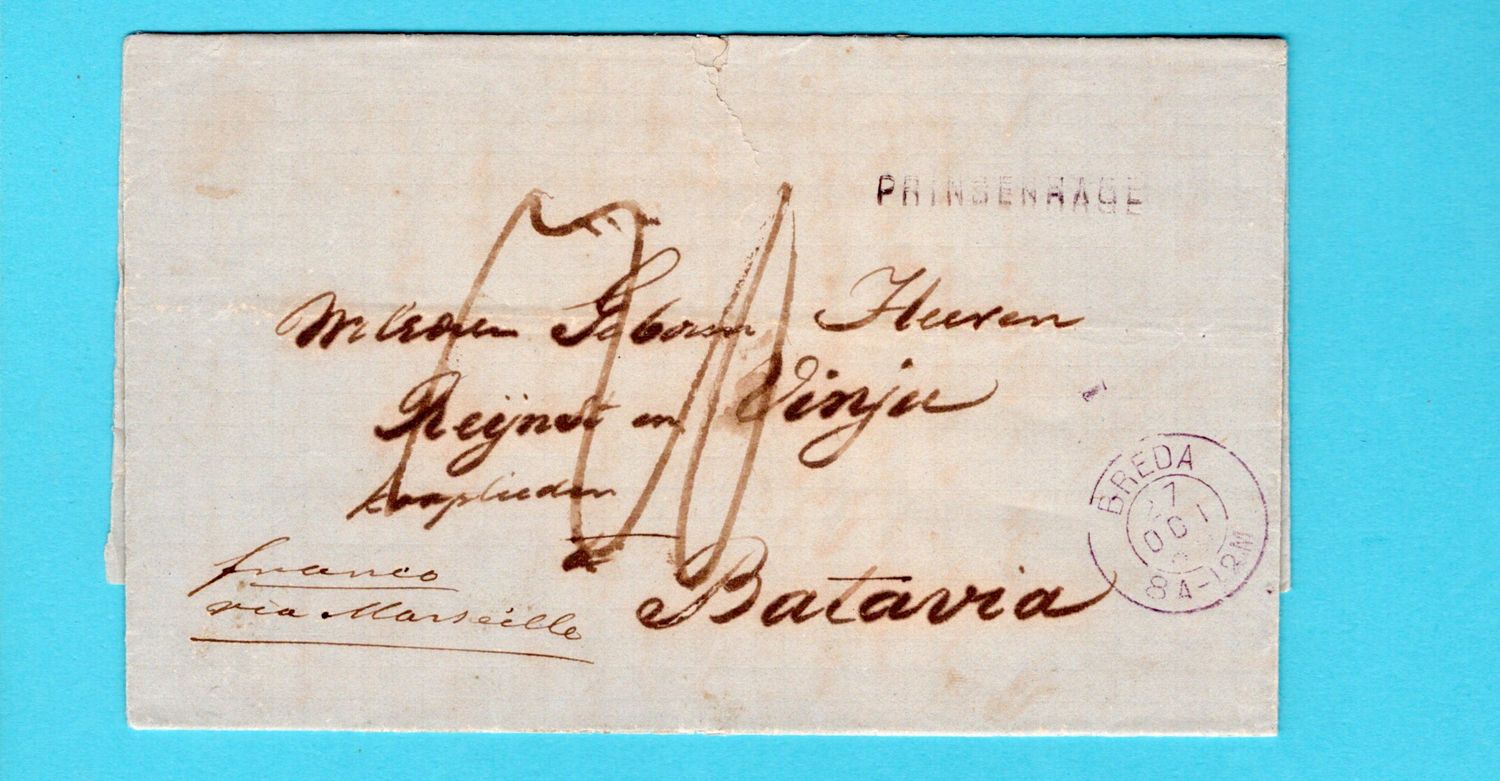 PRINSENHAGE
70
WelEdele Geboren Heeren
Reijnst en Vinju
Kooplieden
te
Batavia
franco
via Marseille
BREDA
OCT
8A-12M